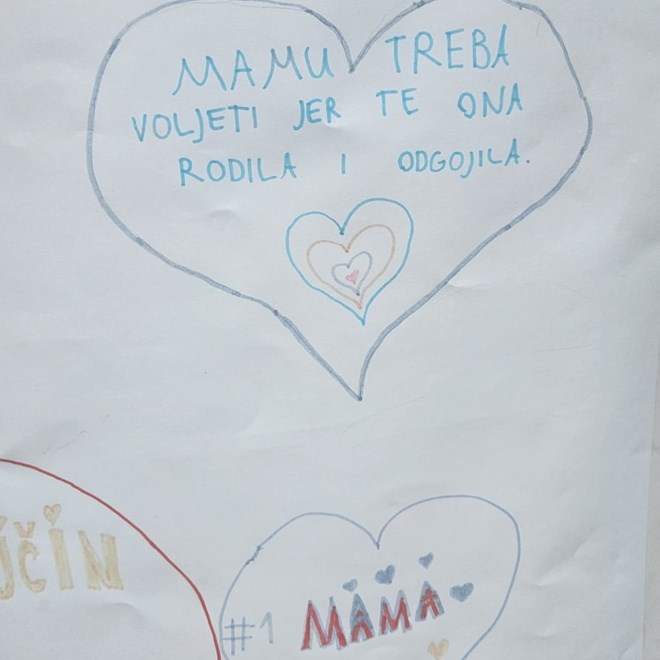 MAMU TREBA
VOLJETI JER TE ONA
RODILA I ODGOJILA.
#1 MAMA